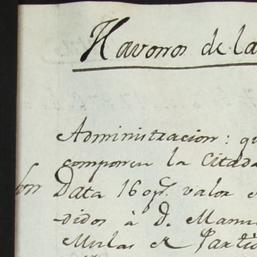 Havonos de la
Administracion: qu
componen la Citada
Data 16 valor e
didos à D. Manu
Mulas de Partic